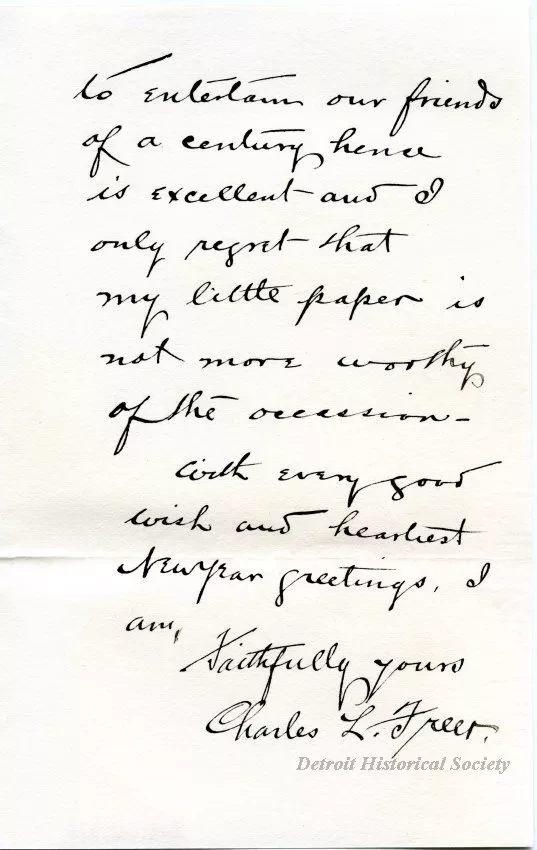 to entertain our friends
of a century hence
is excellent and I
only regret that
my little paper is
not more worthy
of the occassion -
With every good
wish and heartiest
New Year greetings, I
am,
Faithfully yours
Charles L. Freer.
Detroit Historical Society